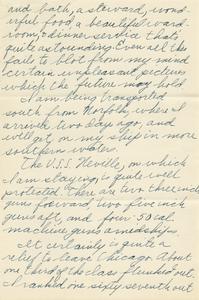 and bath, a steward, wond-
erful food, a beautiful ward-
room, dinner service that's
quite astounding. Even all this
fails to blot from my mind
certain unpleasant pictures
which the future may hold.
I am being transported
south from Norfolk, where I
arrived two days ago, and
will get on my ship in more
southern waters.
The U.S.S. Neville, on which
I am staying, is quite well
protected. There are two three inch
guns forward, two five inch
guns aft, and four .50 cal.
machine guns amidships.
It certainly is quite a
relief to leave Chicago. About
one third of the class flunked out.
I ranked one sixty seventh out